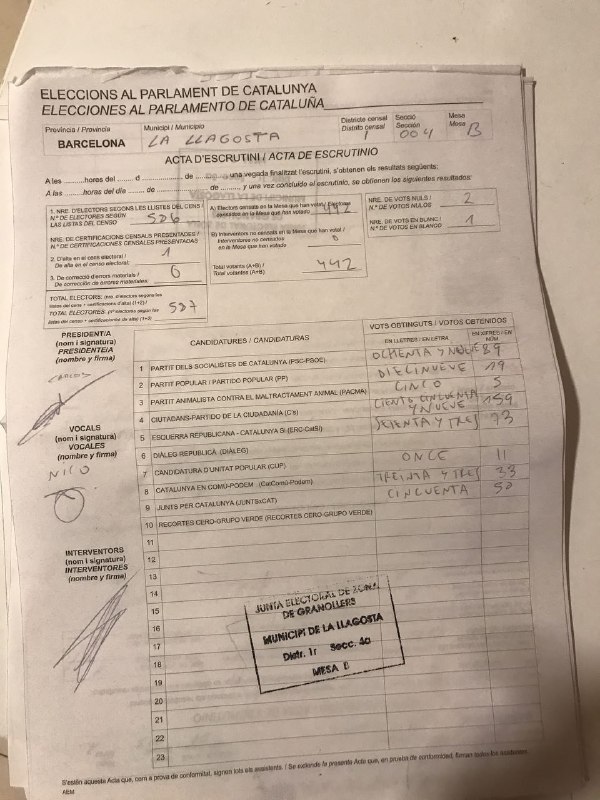 ELECCIONS AL PARLAMENT DE CATALUNYA
ELECCIONES AL PARLAMENTO DE CATALUÑA
Província / Provincia
BARCELONA
Municipi / Municipio
LA LLAGOSTA
Districte censal
Distrito censal
1
Secció
Sección
004
Mesa
Mesa
B
ACTA D'ESCRUTINI / ACTA DE ESCRUTINIO
A les ..........hores del ....... d ............. de ........ una vegada finalitzat l'escrutini, s'obtenen els resultats següents:
A las ..........horas del día ....... de ............. de ........, y una vez concluido el escrutinio, se obtienen los siguientes resultados:
1. NRE. D'ELECTORS SEGONS LES LLISTES DEL CENS /
N.º DE ELECTORES SEGÚN
LAS LISTAS DEL CENSO
506
NRE. DE CERTIFICACIONS CENSALS PRESENTADES /
N.º DE CERTIFICACIONES CENSALES PRESENTADAS
2. D'alta en el cens electoral /
De alta en el censo electoral:
1
3. De correcció d'errors materials /
De corrección de errores materiales:
0
TOTAL ELECTORS: (nre. d'electors segons les
llistes del cens + certificacions d'alta) (1+2) /
TOTAL ELECTORES: (nº electores según las
listas del censo + certificaciones de alta) (1+2)
507
A) Electors censats en la Mesa que han votat / Electores
censados en la Mesa que han votado
442
B) Interventors no censats en la Mesa que han votat /
Interventores no censados
en la Mesa que han votado
0
Total votants (A+B) /
Total votantes (A+B)
442
NRE. DE VOTS NULS /
N.º DE VOTOS NULOS
2
NRE. DE VOTS EN BLANC /
N.º DE VOTOS EN BLANCO
1
PRESIDENT/A
(nom i signatura)
PRESIDENTE/A
(nombre y firma)
CARLOS
VOCALS
(nom i signatura)
VOCALES
(nombre y firma)
NICO
INTERVENTORS
(nom i signatura)
INTERVENTORES
(nombre y firma)
CANDIDATURES / CANDIDATURAS
VOTS OBTINGUTS / VOTOS OBTENIDOS
EN LLETRES / EN LETRA
EN XIFRES / EN NÚM
1 PARTIT DELS SOCIALISTES DE CATALUNYA (PSC-PSOE) OCHENTA Y NUEVE 89
2 PARTIT POPULAR / PARTIDO POPULAR (PP) DIECINUEVE 19
3 PARTIT ANIMALISTA CONTRA EL MALTRACTAMENT ANIMAL (PACMA) CINCO 5
4 CIUTADANS-PARTIDO DE LA CIUDADANÍA (C's) CIENTO CINCUENTA Y NUEVE 159
5 ESQUERRA REPUBLICANA - CATALUNYA SÍ (ERC-CatSí) SETENTA Y TRES 73
6 DIÀLEG REPUBLICÀ (DIÀLEG)
7 CANDIDATURA D'UNITAT POPULAR (CUP) ONCE 11
8 CATALUNYA EN COMÚ-PODEM (CatComú-Podem) TREINTA Y TRES 33
9 JUNTS PER CATALUNYA (JUNTSxCAT) CINCUENTA 50
10 RECORTES CERO-GRUPO VERDE (RECORTES CERO-GRUPO VERDE)
11
12
13
14
15
16
17
18
19
20
21
22
23
JUNTA ELECTORAL DE ZONA
DE GRANOLLERS
MUNICIPI DE LA LLAGOSTA
Distr. 1r Secc. 4a
MESA B
S'estén aquesta Acta que, com a prova de conformitat, signen tots els assistents. / Se extiende la presente Acta que, en prueba de conformidad, firman todos los asistentes.